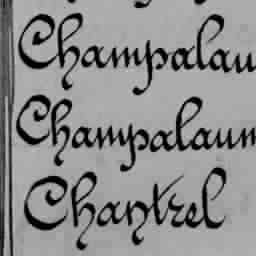 Champalau
Champalaun
Chantrel